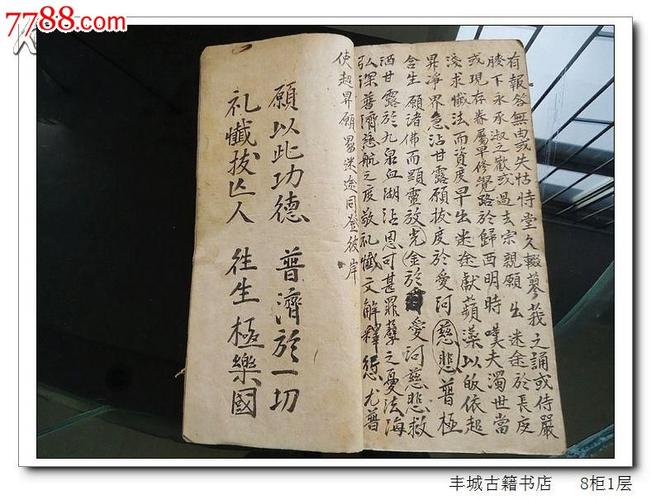 7788.com
有報答無由或失怙恃堂久輟蓼莪之誦或侍嚴
膝下永承淑之歡或過去宗親願出迷途於長夜
或現存眷屬早修覺路於歸西明時嘆夫濁世當
求懺法而資度早出迷途献蘋藻以皈依超
昇淨界急沾甘露願拔度於愛河慈悲普極
含生願諸佛而顯靈放光金於愛河慈悲救
洒甘露於九泉血湖沾恩可甚罪孽之憂法海
弘深普濟慈航之度敬礼懺文解釋愆尤普
使超昇願迷途同登彼岸
願以此功德 普濟於一切
礼懺拔亾人 往生極樂國
丰城古籍书店 8柜1层